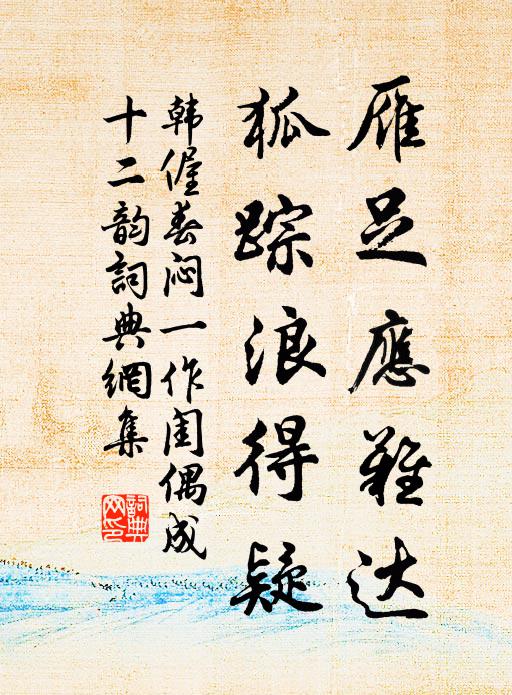 雁足應難达
狐踪浪得疑
韩偓春闷一作闺偶成
十二韵詞典網集
詞典
网印